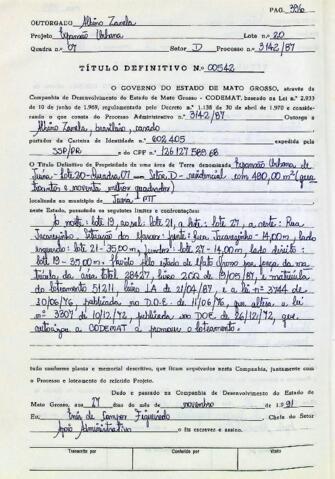 PAG. 386
OUTORGADO Albino Zanela
Projeto Expansão Urbana Lote n.º 20
Quadra n.º 07 Setor D Processo n.º 3142/87
TÍTULO DEFINITIVO N.º 00542
O GOVERNO DO ESTADO DE MATO GROSSO, através da
Companhia de Desenvolvimento do Estado de Mato Grosso - CODEMAT, baseado na Lei n.º 2.933
de 10 de junho de 1969, regulamentado pelo Decreto n.º 1.138 de 30 de abril de 1970 e considerando
o que consta do Processo Administrativo n.º 3142/87 Outorga a
Albino Zanela, brasileiro, casado
portador da Carteira de Identidade n.º 602.405 expedida pela
SSP/PR e do CPF n.º 126127589 68
O Título Definitivo de Propriedade de uma área de Terra denominada Expansão Urbana de
Juína - Lote 20 - Quadra 07 - Setor D - residencial com 490,00 m² (qua
trocentos e noventa metros quadrados)
localizada no município de Juína MT
neste Estado, passando os seguintes limites e confrontações:
ao norte: lote 19, ao sul: lote 21, a leste: lote 27, a oeste: Rua
frente: Rua 14,00m, lado
esquerdo: lote 21 - 35,00m, fundos: lote 27 - 14,00m, lado direito:
lote 19 - 35,00m. pelo Estado de Mato Grosso por força da ma
trícula da área total 28427, livro 2QQ de 19/05/87, e matrícula
do loteamento 51211 livro 1A de 21/04/87, e a lei nº 3744 de
10/06/76, publicada no D.O.E. de 11/06/76, que altera a lei
nº 3307 de 10/12/72, publicada no DOE de 26/12/72, que
autoriza a CODEMAT a promover o loteamento.
tudo conforme planta e memorial descritivo, que ficam arquivados nesta Companhia, juntamente com
o Processo e loteamento do referido Projeto.
Dado e passado na Companhia de Desenvolvimento do Estado de
Mato Grosso, aos 27 dias do mês de novembro de 19 91
Eu, Inês de Campos Figueiredo Chefe do Setor
Apoio Administrativo o fiz escrever e assino.
Transcrito por Conferido por Visto